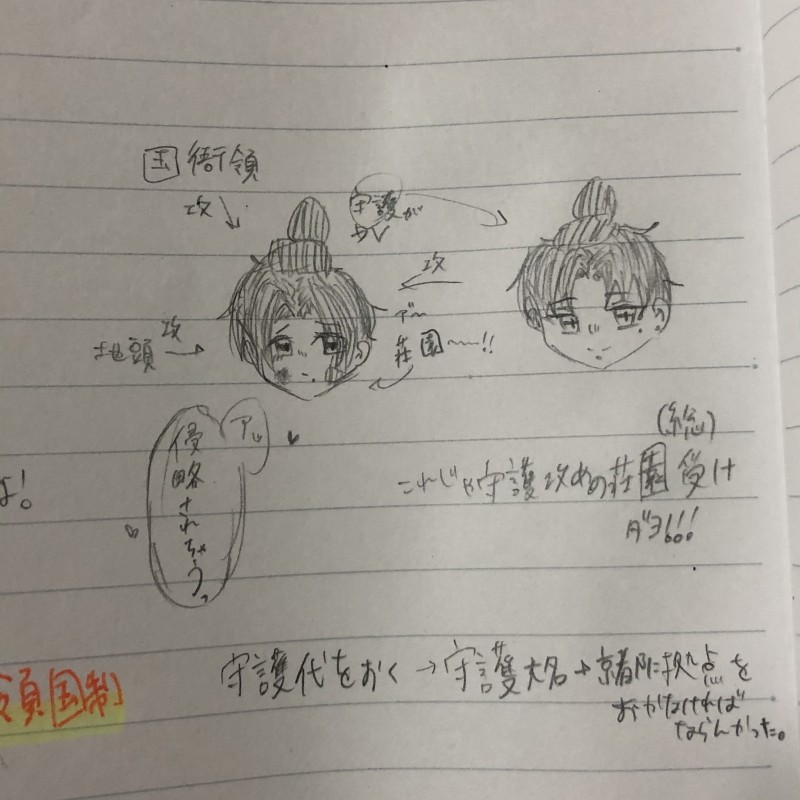 国衙領
攻
守護が
攻
地頭 攻
荘園〜〜!!
アッ
侵略されちゃうっ
(総)
これじゃ守護攻めの荘園受け
ダヨ!!!
よ!
領国制
守護代をおく→守護大名→京都に拠点を
おかなければ
ならんかった。